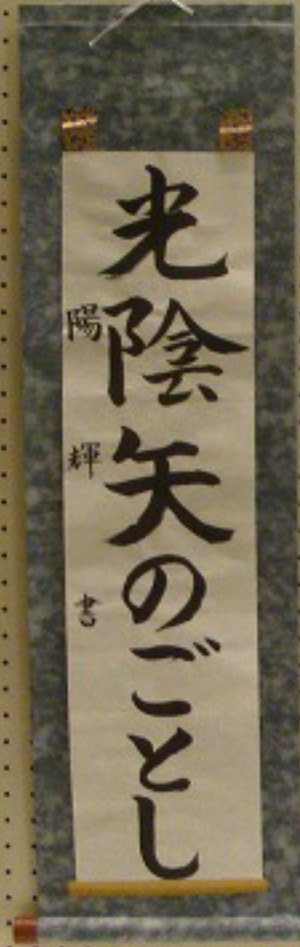 光陰矢のごとし
陽輝書